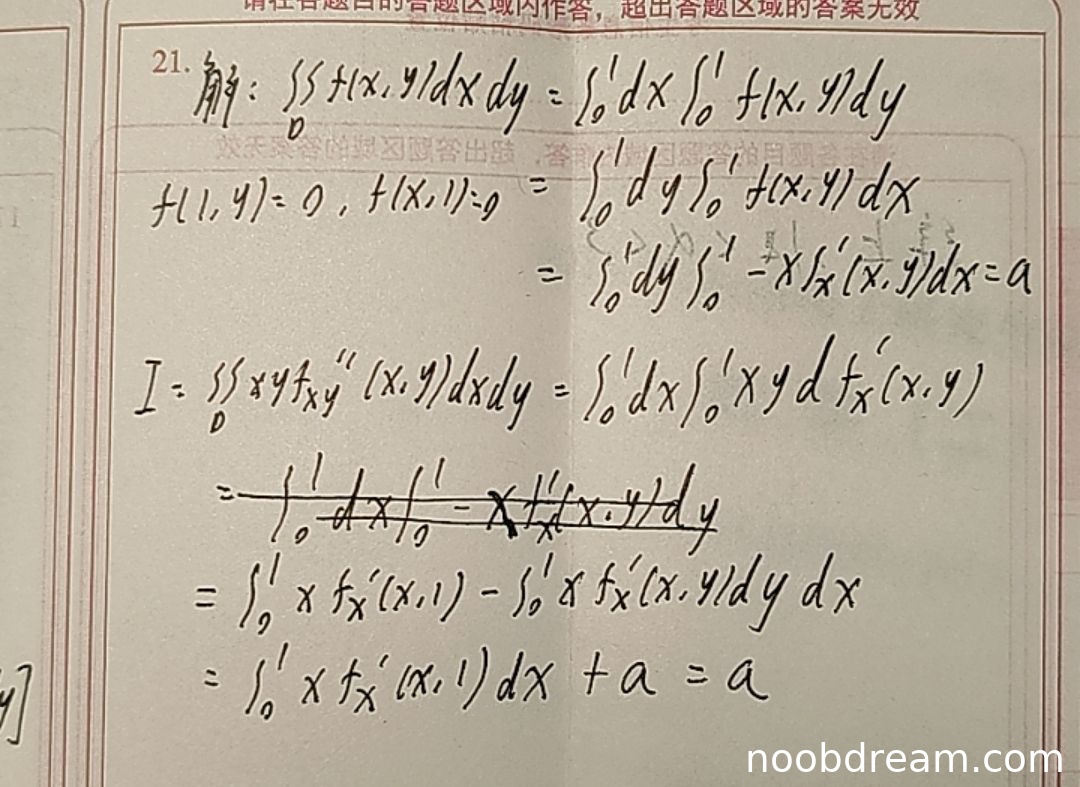 请在各题目的答题区域内作答，超出答题区域的答案无效
21. 解: ∬_D f(x,y)dxdy = ∫₀¹dx∫₀¹ f(x,y)dy
f(1,y)=0, f(x,1)=0 = ∫₀¹dy∫₀¹ f(x,y)dx
= ∫₀¹dy∫₀¹ -xfₓ'(x,y)dx=a
I = ∬_D xyf_xy''(x,y)dxdy = ∫₀¹dx∫₀¹xydfₓ'(x,y)
= ∫₀¹dx∫₀¹ -xfₓ'(x,y)dy
= ∫₀¹ xfₓ'(x,1) - ∫₀¹xfₓ'(x,y)dydx
= ∫₀¹ xfₓ'(x,1)dx + a = a
y]
noobdream.com